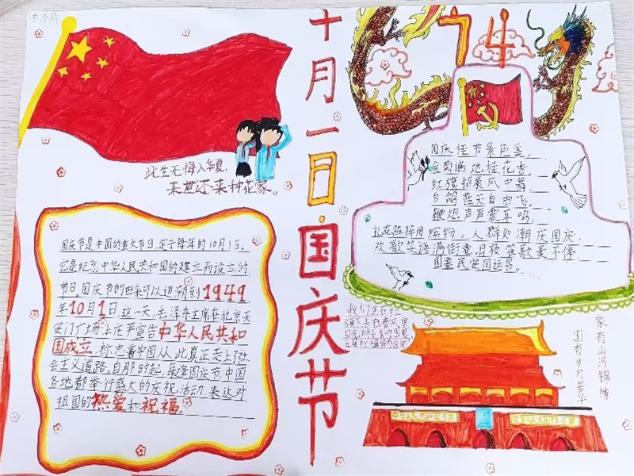 十月一日国庆节
74
此生无悔入华夏
来世还来种花家。
国庆节是中国的重大节日,定于每年的10月1日。
它是纪念中华人民共和国的建立而设立的
节日 国庆节的由来可以追溯到1949
年10月1日 这一天 毛泽东主席在北京天
安门广场上庄严宣告中华人民共和
国成立, 标志着中国从此真正走上了社
会主义道路,自那时起,每逢国庆节中国
各地都举行盛大的庆祝活动 表达对
祖国的热爱和祝福
国庆佳节景色美,
红旗招展
白鸽蓝天自由飞,
鞭炮声声震耳鸣
人群处处潮庆国庆,
欢歌笑语满街巷
国泰民安国运昌。
家有山河锦绣
国有日月芳华